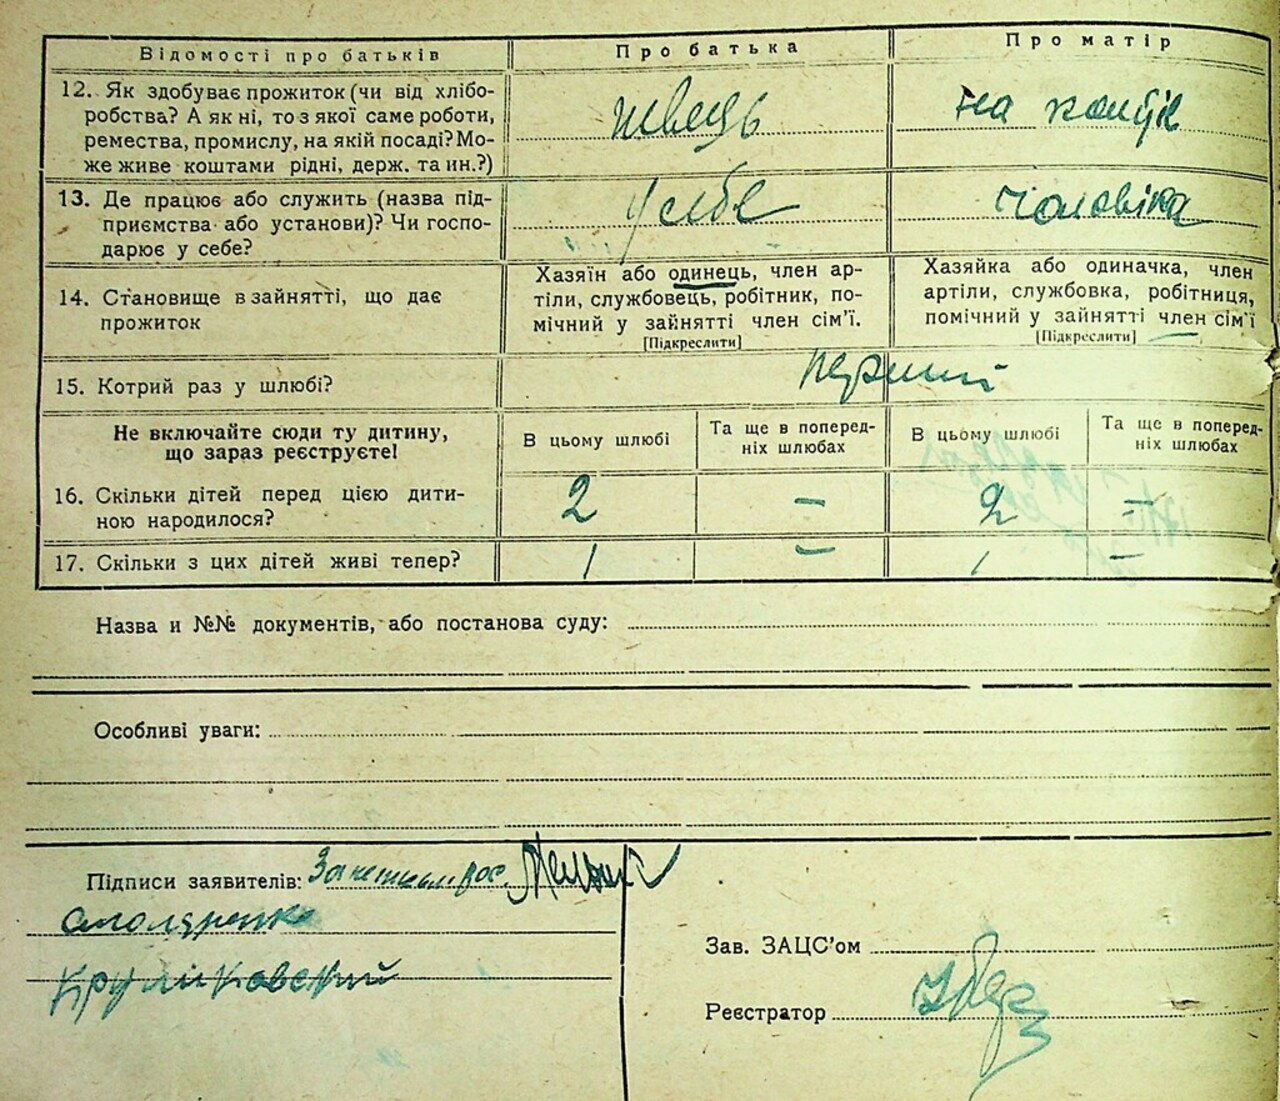 Відомості про батьків
Про батька
Про матір
12. Як здобуває прожиток (чи від хлібо-
робства? А як ні, то з якої саме роботи,
ремества, промислу, на якій посаді? Мо-
же живе коштами рідні, держ. та ин.?)
швець
на кошт
13. Де працює або служить (назва під-
приємства або установи)? Чи госпо-
дарює у себе?
у себе
чоловіка
14. Становище в зайнятті, що дає
прожиток
Хазяїн або одинець, член ар-
тіли, службовець, робітник, по-
мічний у зайнятті член сім'ї.
[Підкреслити]
Хазяйка або одиначка, член
артіли, службовка, робітниця,
помічний у зайнятті член сім'ї
[Підкреслити]
15. Котрий раз у шлюбі?
перший
Не включайте сюди ту дитину,
що зараз реєструєте!
В цьому шлюбі
Та ще в поперед-
ніх шлюбах
В цьому шлюбі
Та ще в поперед-
ніх шлюбах
16. Скільки дітей перед цією дити-
ною народилося?
2
–
2
–
17. Скільки з цих дітей живі тепер?
1
–
1
–
Назва и №№ документів, або постанова суду:
Особливі уваги:
Підписи заявителів:
Зав. ЗАЦС'ом
Реєстратор